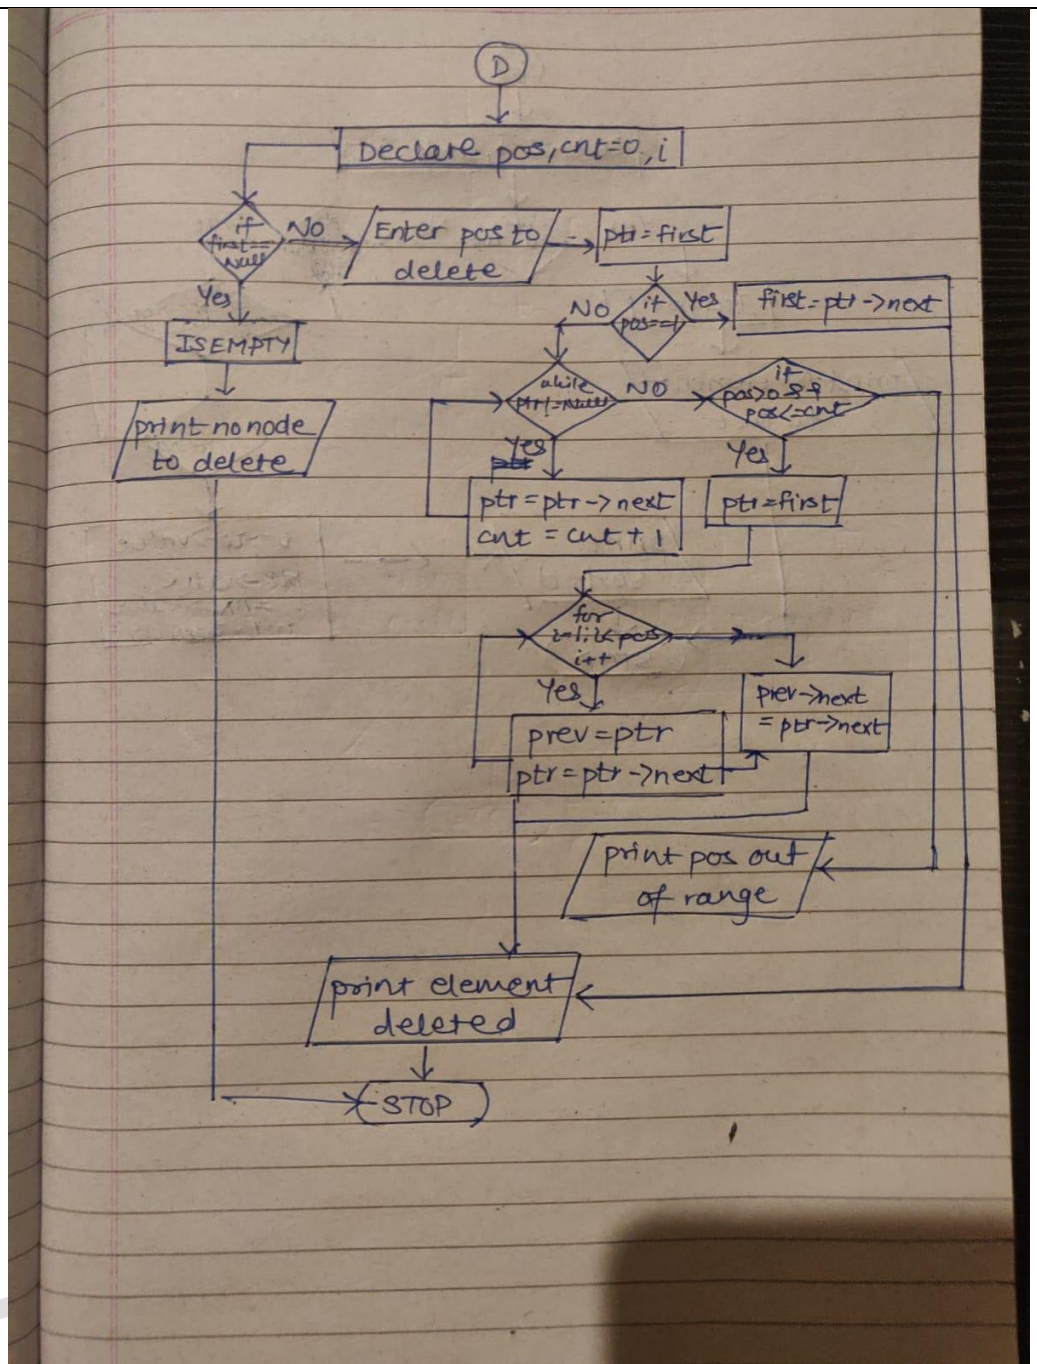 D
Declare pos, cnt=0, i
if
first==
Null
NO
Enter pos to
delete
ptr=first
Yes
ISEMPTY
print no node
to delete
if
pos==1
NO
Yes
first=ptr->next
while
ptr!=Null
NO
if
pos>0 &&
pos<=cnt
Yes
ptr=ptr->next
cnt = cnt + 1
Yes
ptr=first
for
i=1; i<pos
i++
Yes
prev=ptr
ptr=ptr->next
prev->next
=ptr->next
print pos out
of range
print element
deleted
STOP